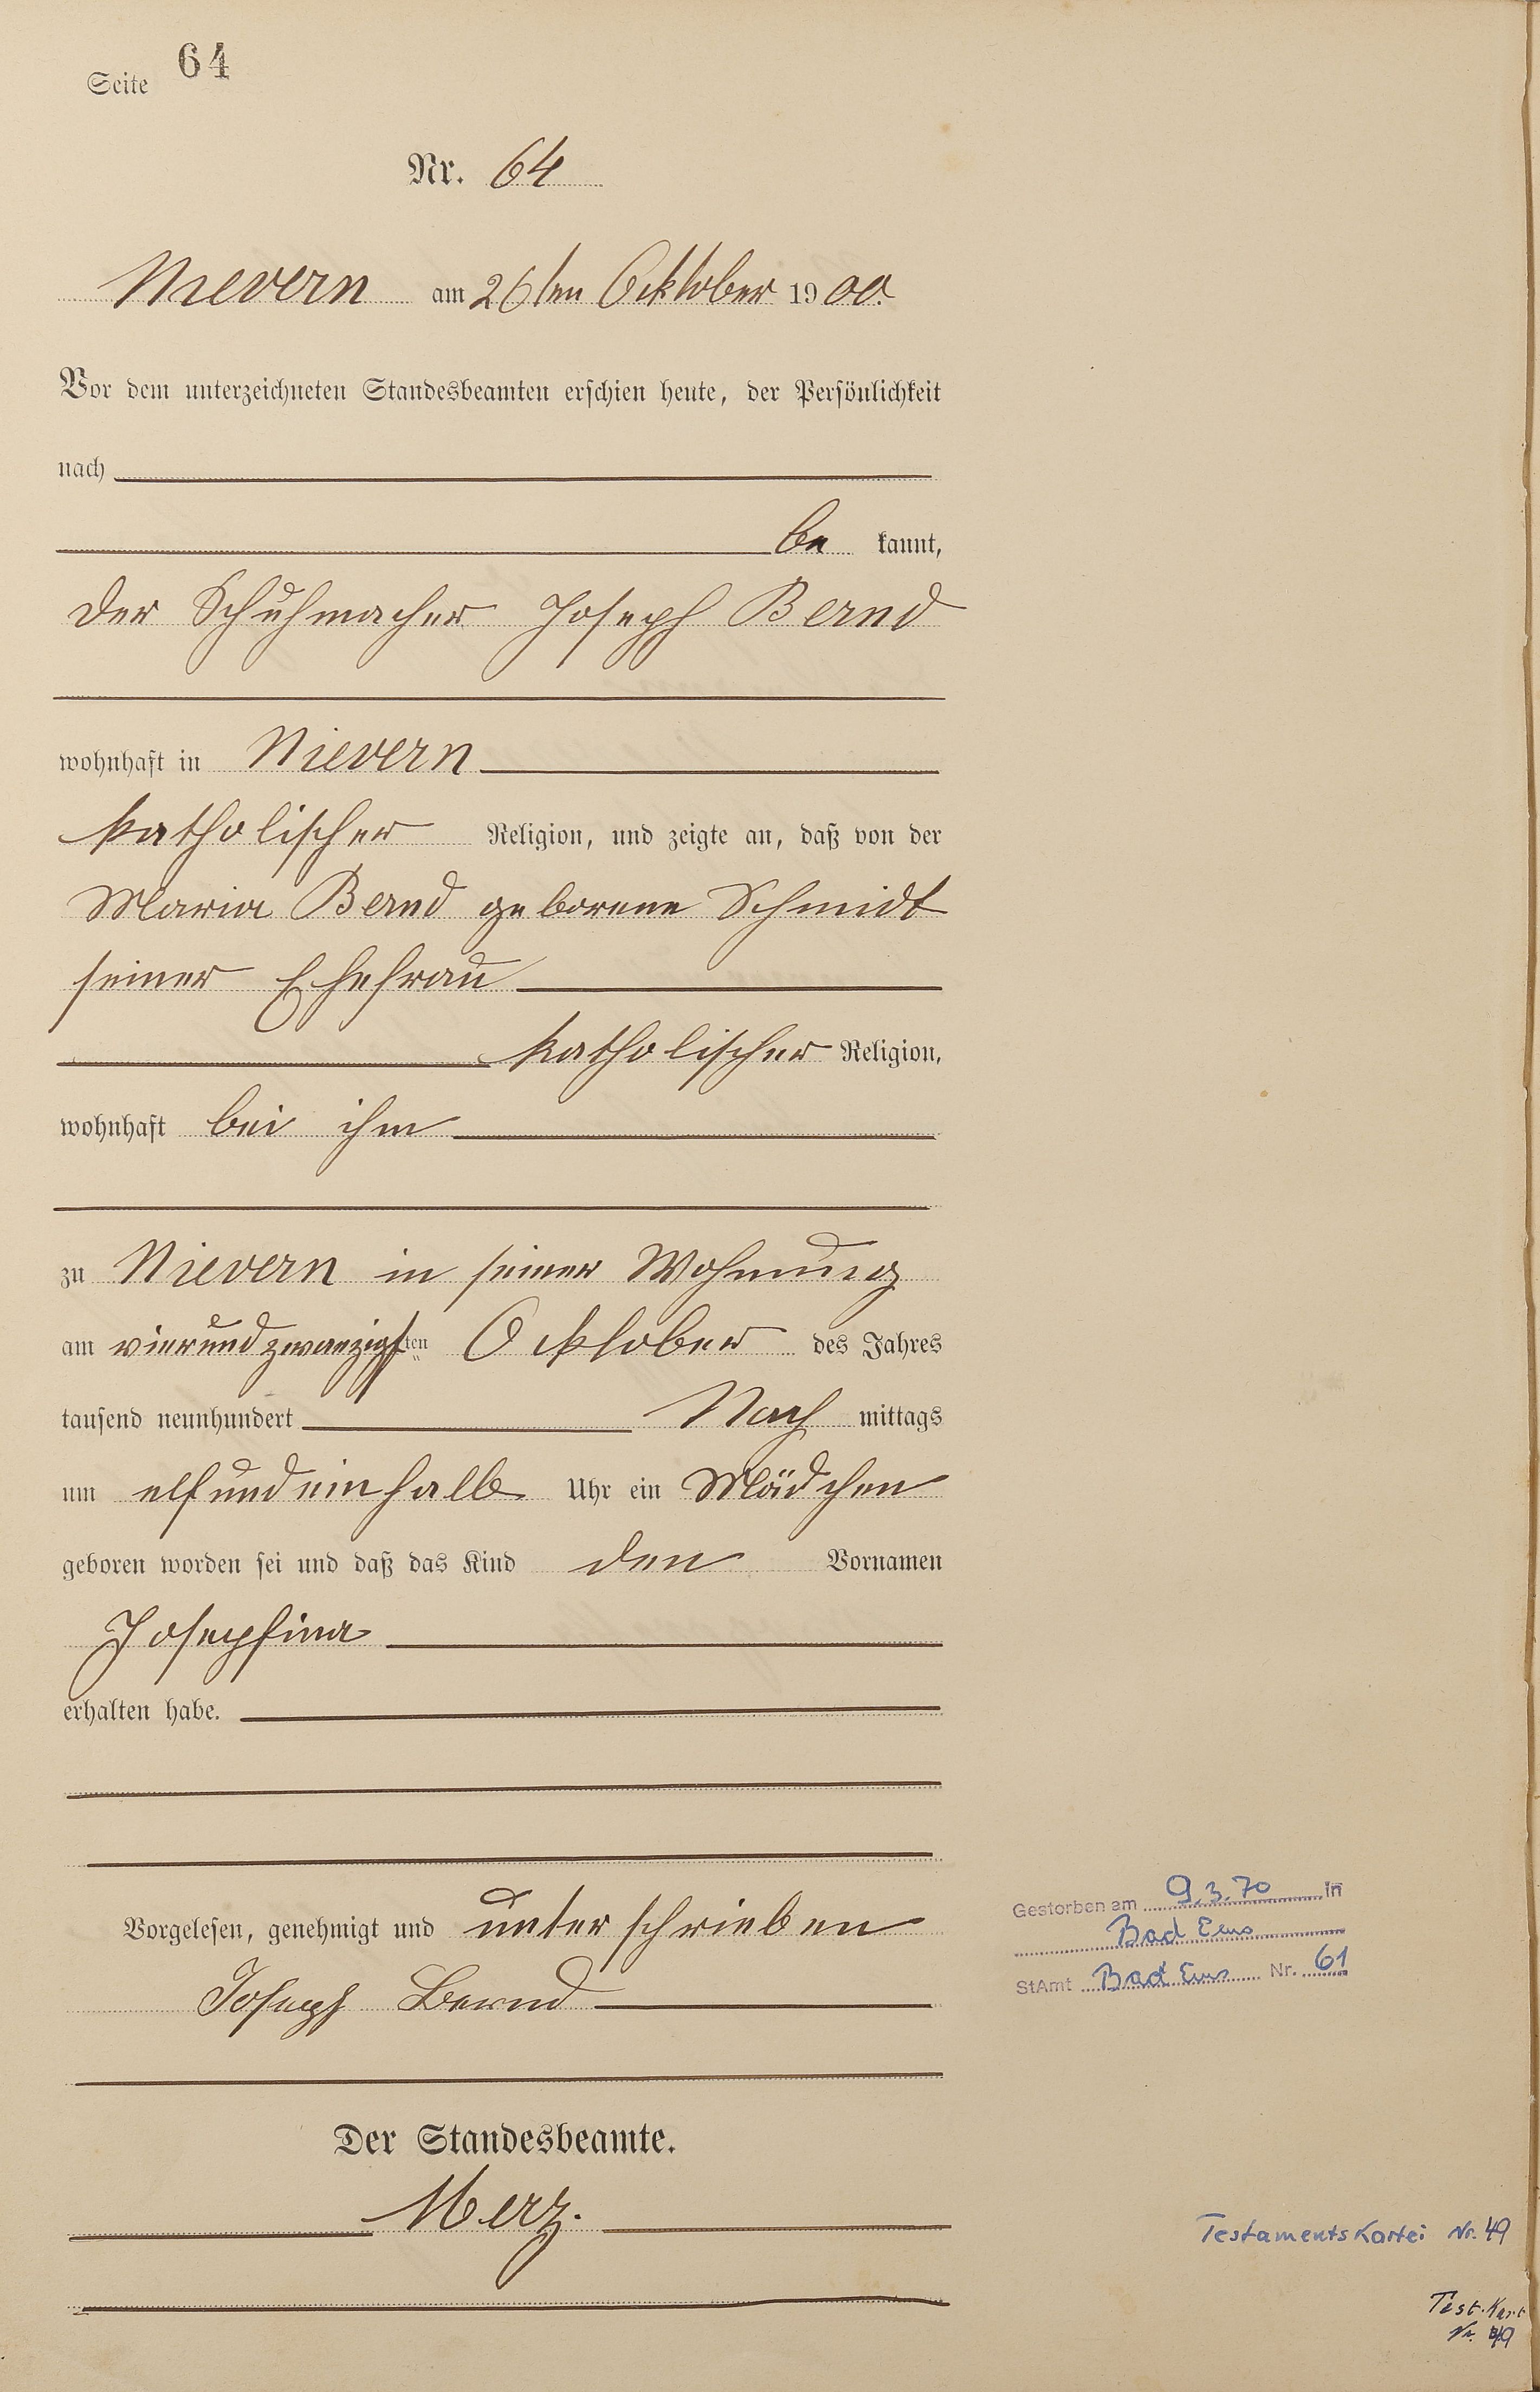 Seite 64
Nr. 64
Nievern am 26ten Ocktober 1900.
Vor dem unterzeichneten Standesbeamten erschien heute, der Persönlichkeit
nach
be kannt,
der Schuhmacher Joseph Bernd
wohnhaft in Nievern
katholischer Religion, und zeigte an, daß von der
Maria Bernd geborene Schmidt
seiner Ehefrau
katholischer Religion,
wohnhaft bei ihm
zu Nievern in seiner Wohnung
am vierundzwanzigsten Ocktober des Jahres
tausend neunhundert Nach mittags
um elfundeinhalb Uhr ein Mädchen
geboren worden sei und daß das Kind den Vornamen
Josephina
erhalten habe.
Vorgelesen, genehmigt und unterschrieben
Joseph Bernd
Der Standesbeamte.
Merz.
Gestorben am 9.3.70 in
Bad Ems
StAmt Bad Ems Nr. 61
Testamentskartei Nr. 49
Test. Kart
Nr. 49